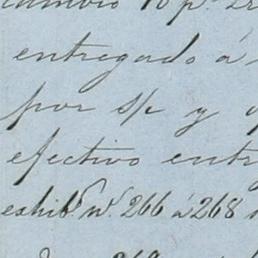 cambio 10 p.
entregado á
por s/c y
efectivo entr
exhib.n n.s 266 á 268